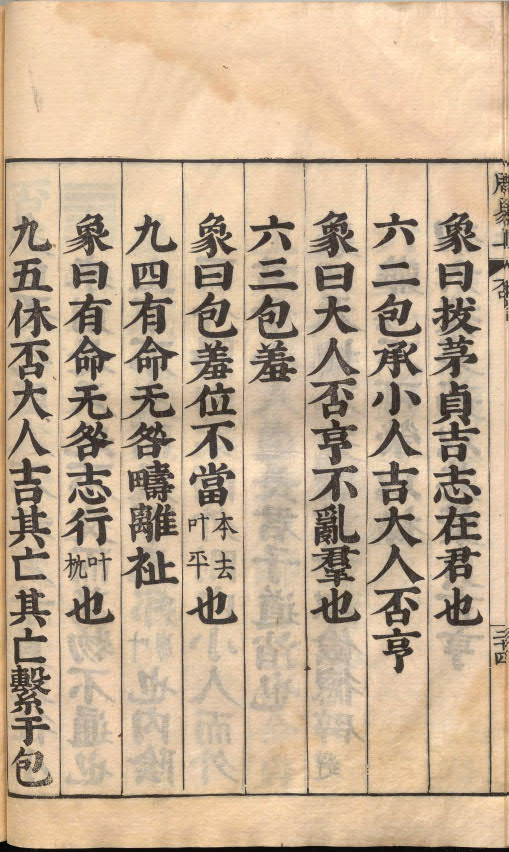 象曰拔茅貞吉志在君也
六二包承小人吉大人否亨
象曰大人否亨不亂羣也
六三包羞
象曰包羞位不當本去叶平也
九四有命无咎疇離祉
象曰有命无咎志行叶杭也
九五休否大人吉其亡其亡繫于包